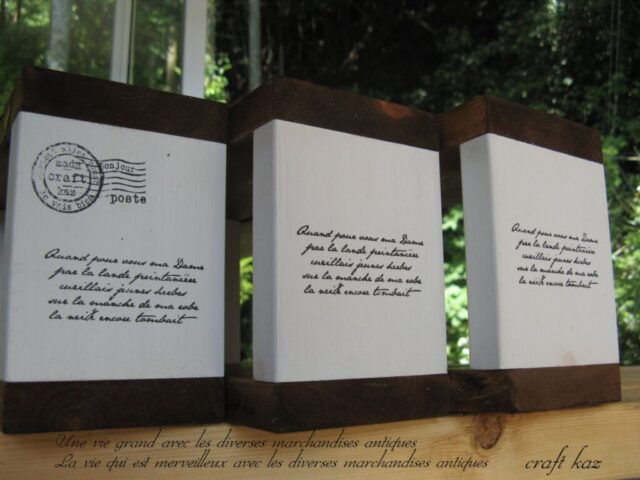 made
craft
kaz
Je vais bien
Bonjour
poste
Quand pour vous ma Dame
par la lande printanière
cueillais jeunes herbes
sur la manche de ma robe
la neige encore tombait
Quand pour vous ma Dame
par la lande printanière
cueillais jeunes herbes
sur la manche de ma robe
la neige encore tombait
Quand pour vous ma Dame
par la lande printanière
cueillais jeunes herbes
sur la manche de ma robe
la neige encore tombait
Une vie grand avec les diverses marchandises antiques
La vie qui est merveilleux avec les diverses marchandises antiques
craft kaz